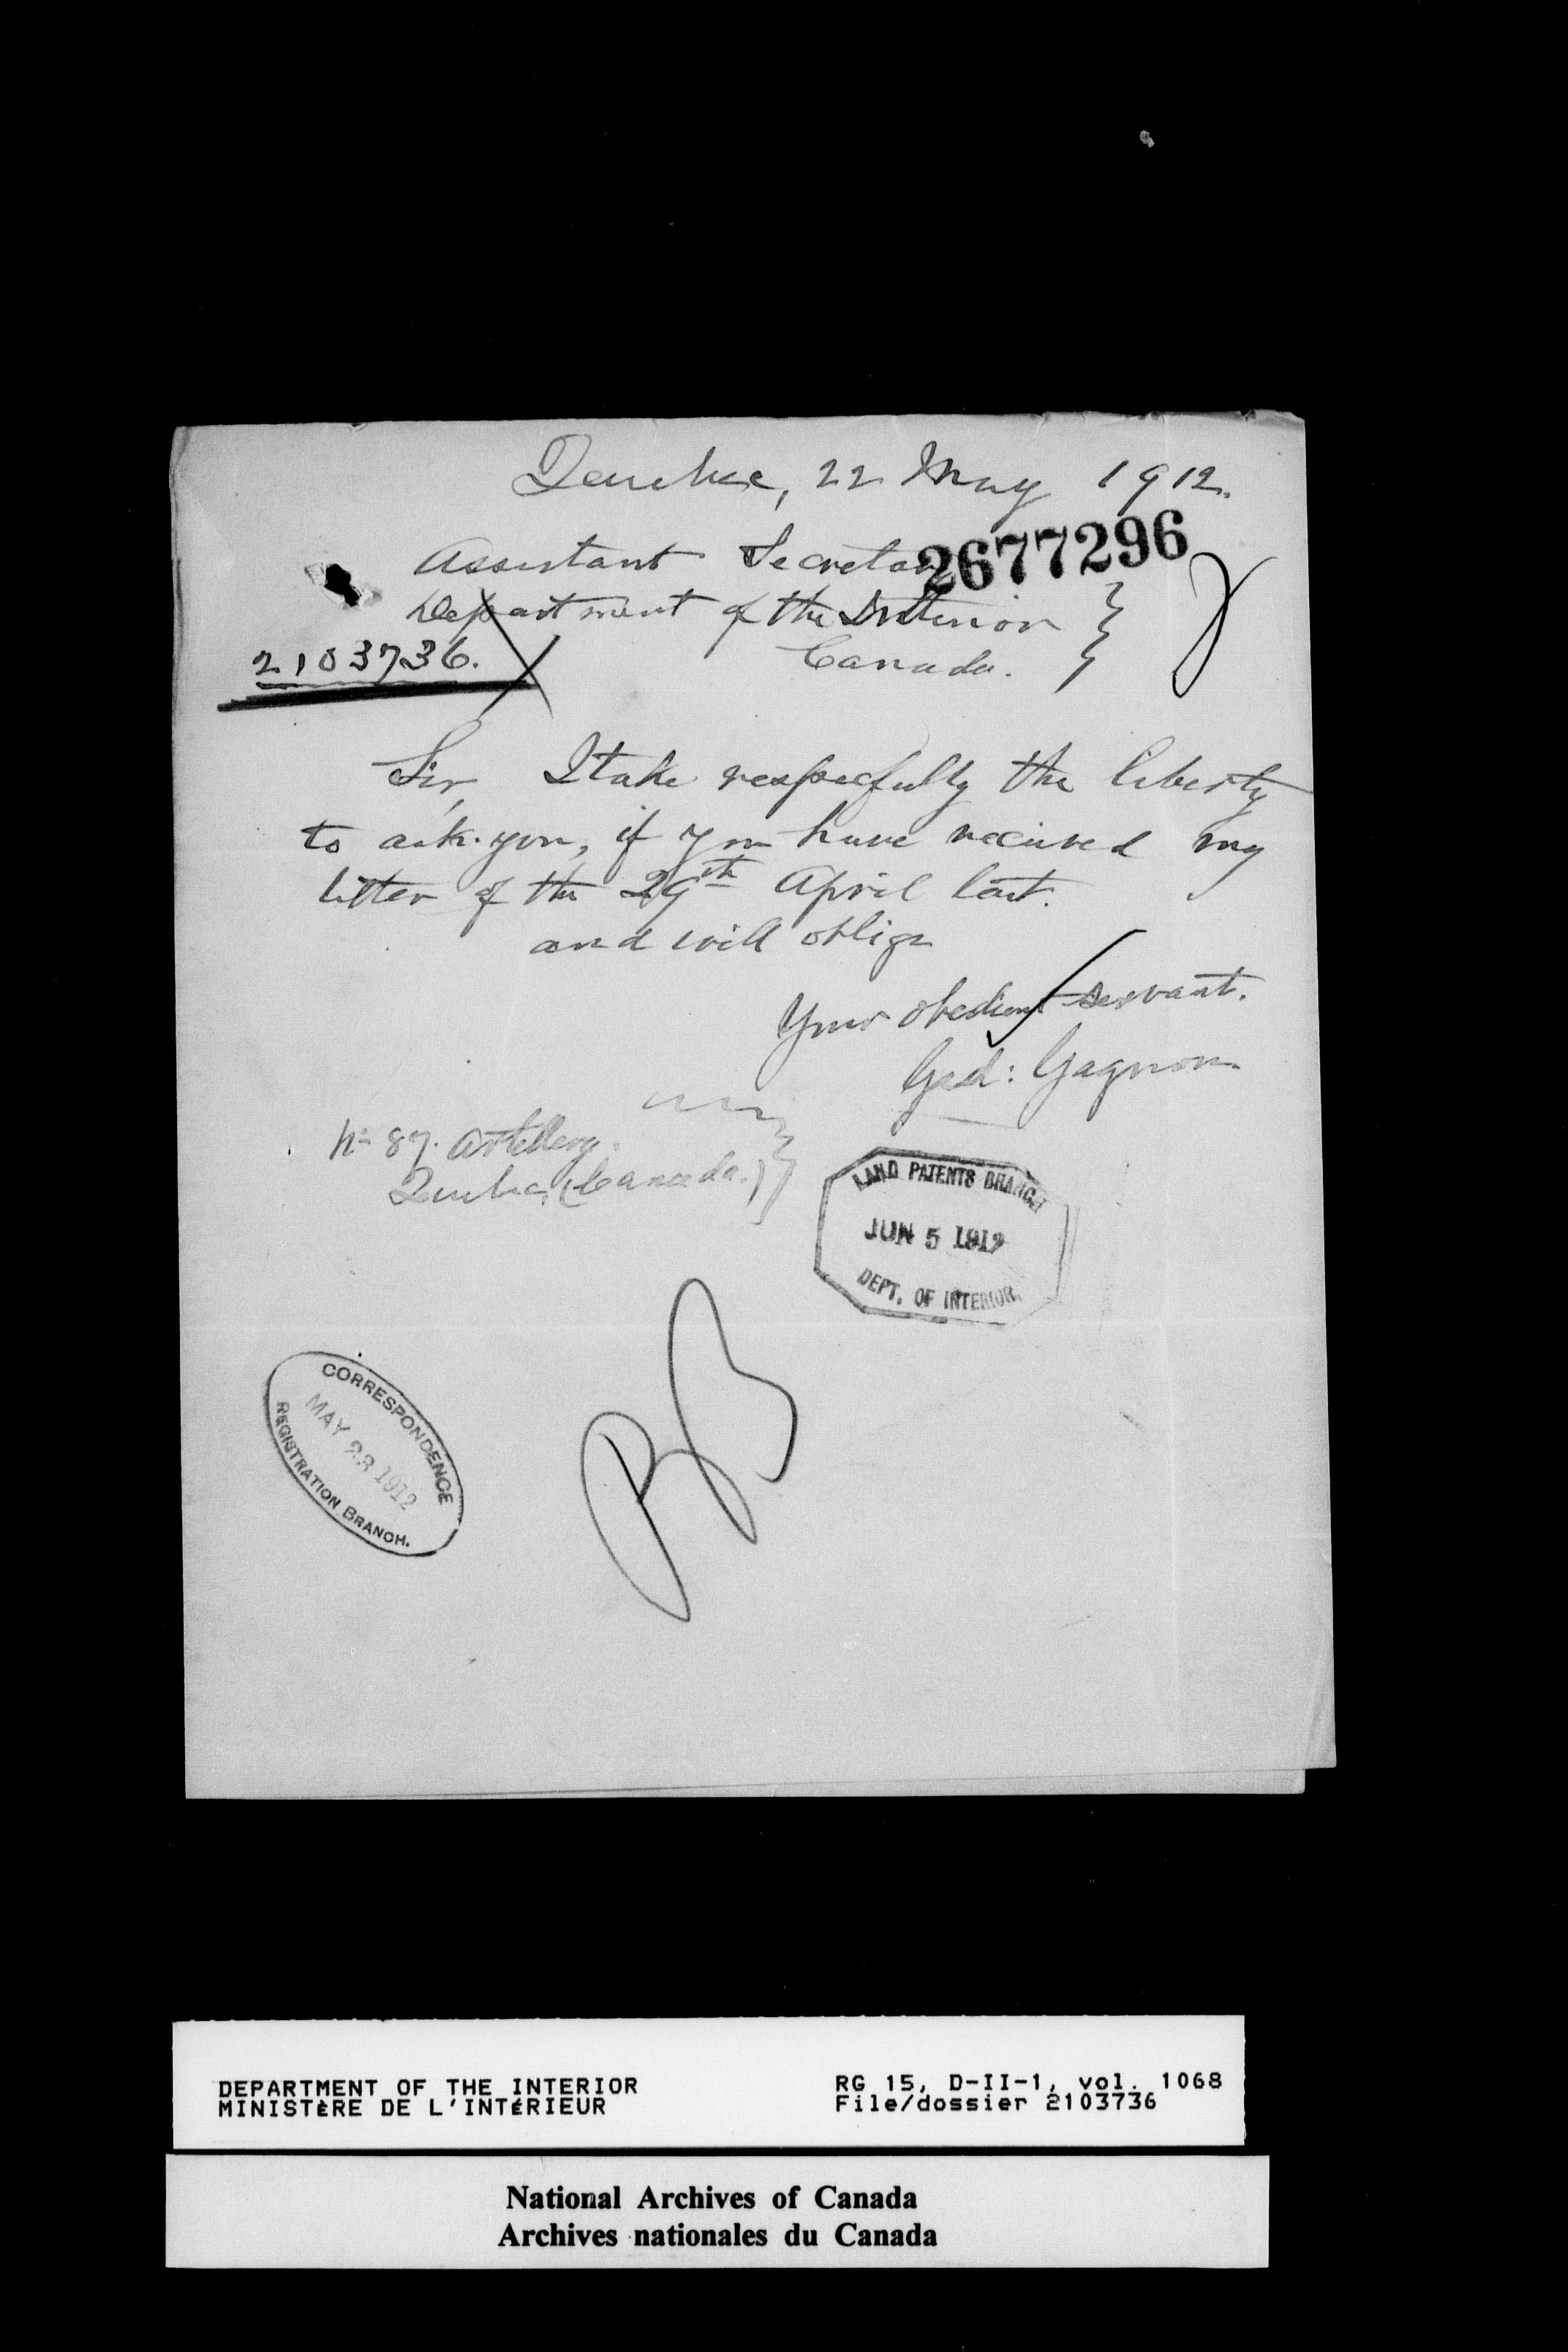 Quebec, 22 May 1912.
2677296
Assistant Secretary
Department of the Interior
Canada.
2103736.
Sir I take respecfully the liberty
to ask you, if you have received my
letter of the 29th April last.
and will oblige
Your obedient servant.
Ged: Gagnon
No 87. Artillery.
Quebec, (Canada.)
LAND PATENTS BRANCH
JUN 5 1912
DEPT. OF INTERIOR.
CORRESPONDENCE
MAY 23 1912
REGISTRATION BRANCH.
DEPARTMENT OF THE INTERIOR
MINISTÈRE DE L'INTÉRIEUR
RG 15, D-II-1, vol. 1068
File/dossier 2103736
National Archives of Canada
Archives nationales du Canada